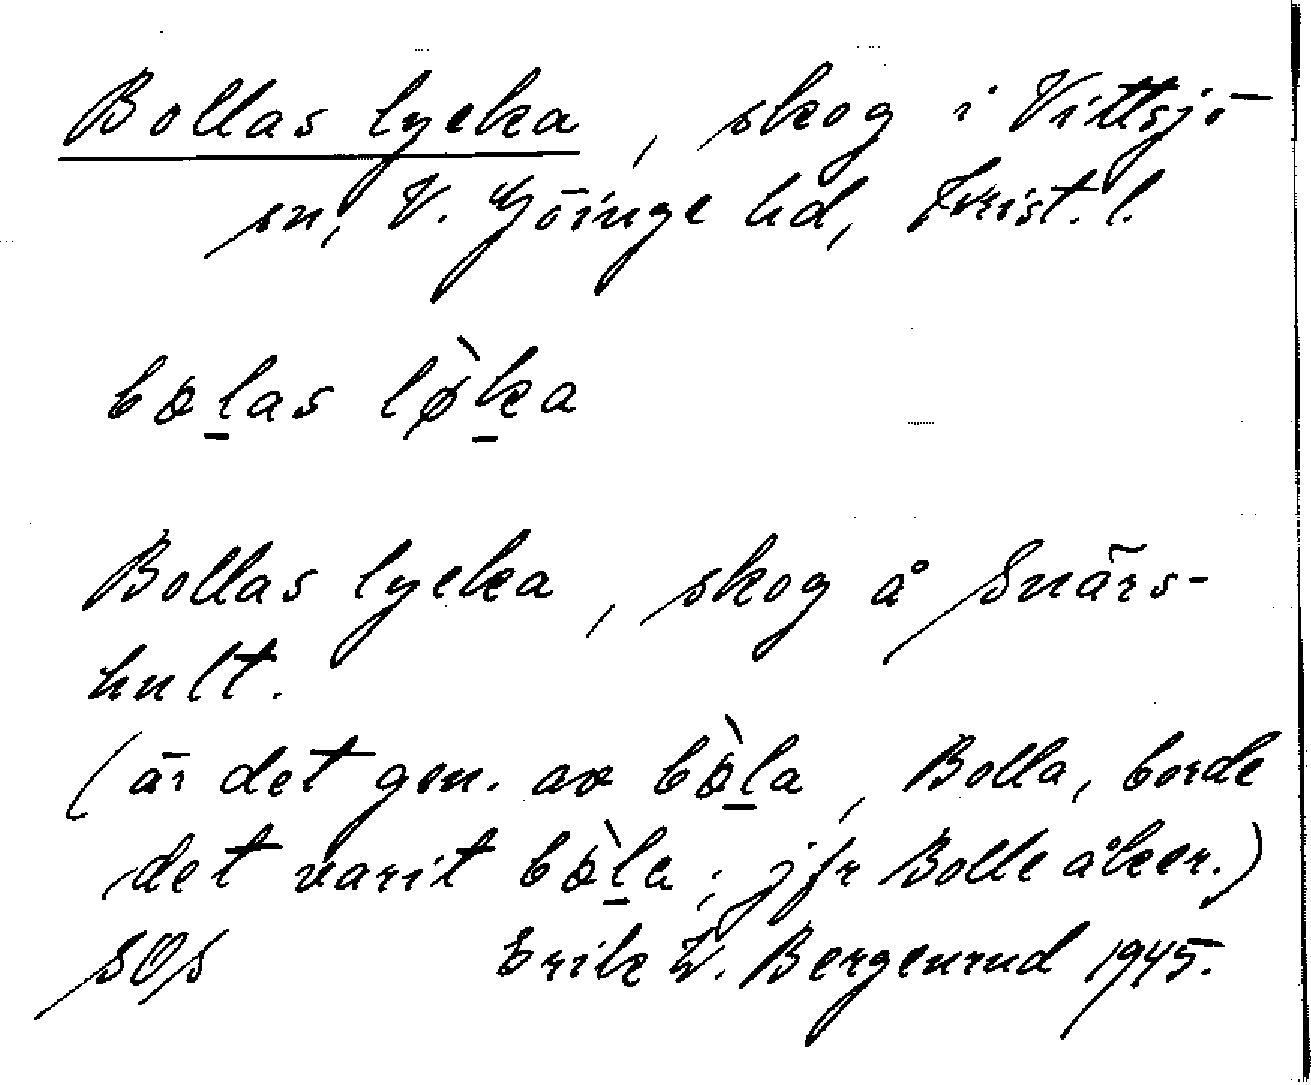 Bollas lycka, skog i Vittsjö
sn, V. Göinge hd, Krist. l.
bɷl̲as lø̀k̲a
Bollas lycka, skog å Snärs-
hult.
(är det gen. av bɷ̀l̲a, Bolla, borde
det varit bɷ̀l̲e; jfr Bolle åker.)
SOS Erik W. Bergenrud 1945.